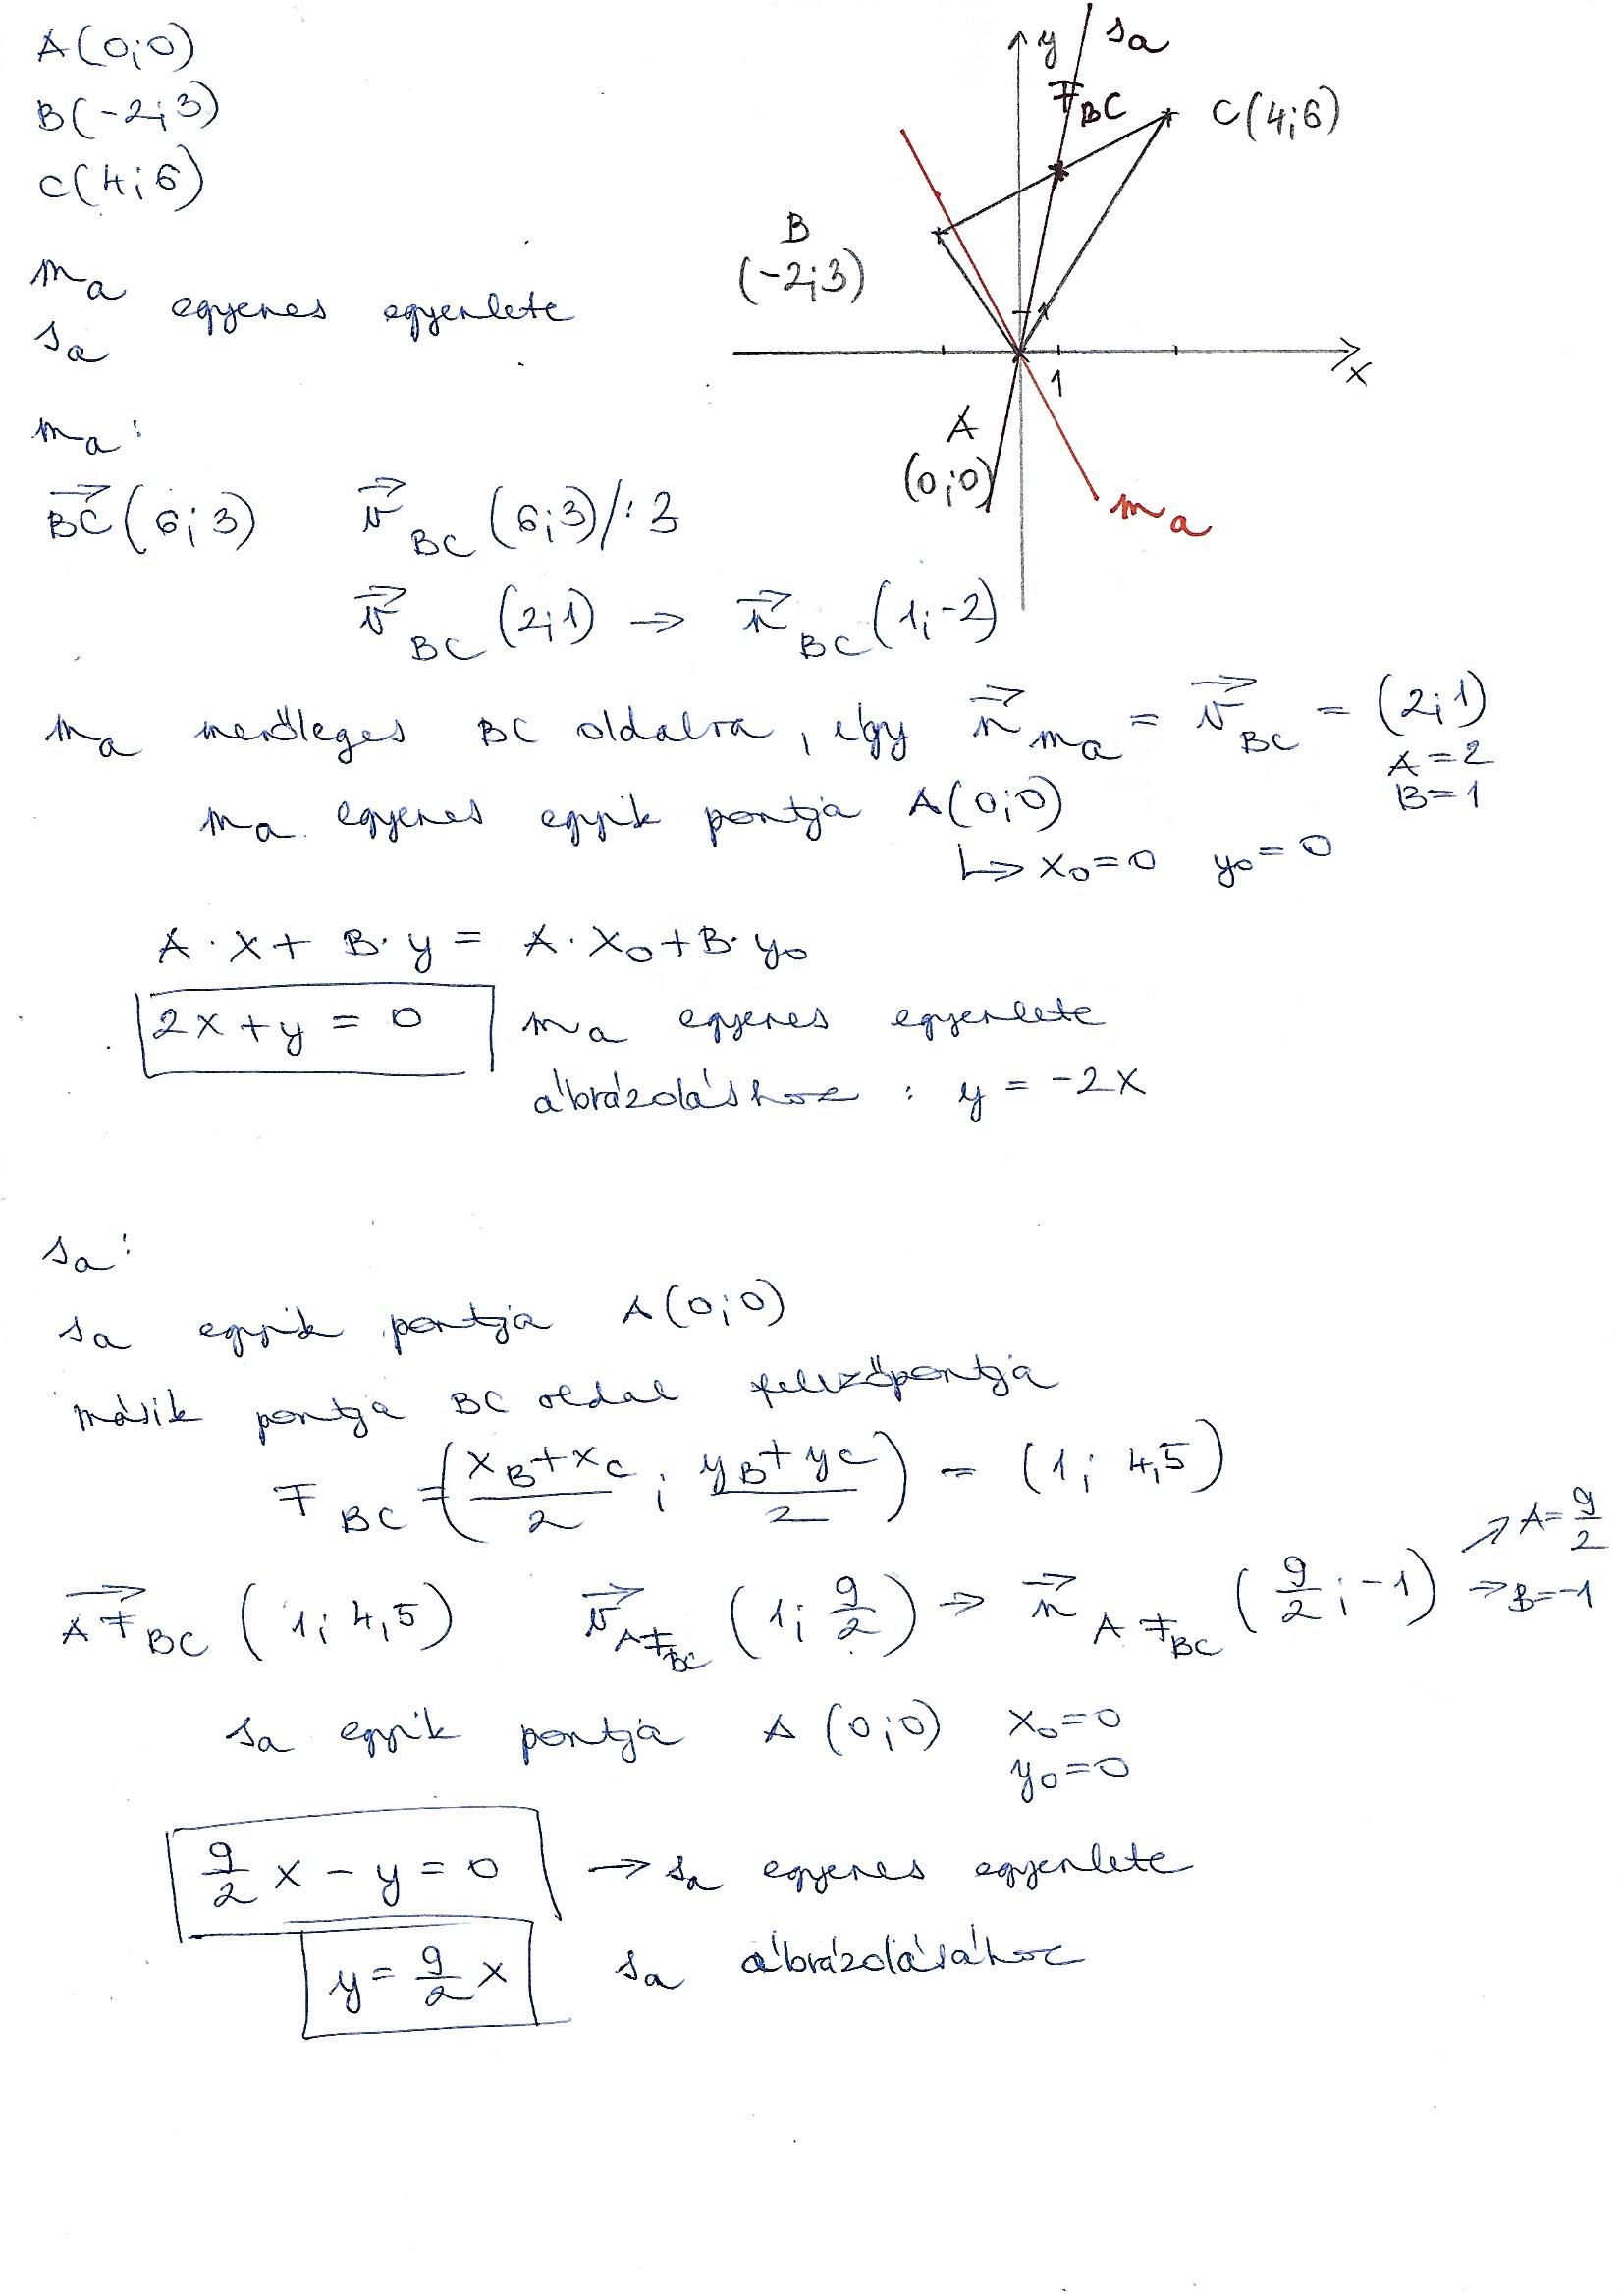 A(0;0)
B(-2;3)
C(4;6)
ma
sa
egyenes egyenlete
y
sa
FBC
C(4;6)
B
(-2;3)
1
1
x
A
(0;0)
ma
ma:
→BC (6;3) →v BC (6;3) /:3
→v BC (2;1) → →n BC (1;-2)
ma merőleges BC oldalra, így →n ma = →v BC = (2;1)
A=2
B=1
ma egyenes egyik pontja A(0;0)
↳ x0=0 y0=0
A·x + B·y = A·x0+B·y0
2x+y=0 ma egyenes egyenlete
ábrázoláshoz: y=-2x
sa:
sa egyik pontja A(0;0)
másik pontja BC oldal felezőpontja
F BC = (xB+xC/2 ; yB+yC/2) = (1; 4,5)
→AFBC (1; 4,5) →v AFBC (1; 9/2) → →n AFBC (9/2; -1) → A=9/2
→ B=-1
sa egyik pontja A(0;0) x0=0
y0=0
9/2 x - y = 0 → sa egyenes egyenlete
y = 9/2 x sa ábrázolásához